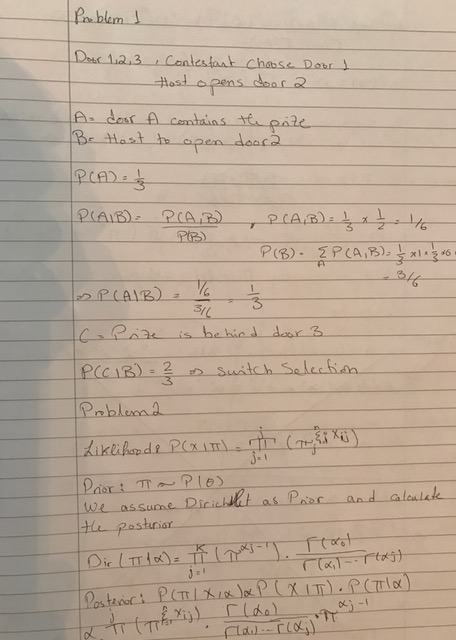 Problem 1
Door 1,2,3 , Contestant Choose Door 1
Host opens door 2
A= door A contains the prize
B= Host to open door 2
P(A) = 1/3
P(A|B) = P(A,B)/P(B) , P(A,B) = 1/3 × 1/2 = 1/6
P(B) = Σ_A P(A,B) = 1/3 × 1 × 1/3 × 0
= 3/6
⇒ P(A|B) = (1/6)/(3/6) = 1/3
C = Prize is behind door 3
P(C|B) = 2/3 ⇒ Switch Selection
Problem 2
Likelihood: P(x|π) = ∏_{j=1}^{j} (π_j^{Σ x_ij})
Prior: π ~ P(θ)
We assume Dirichlet as Prior and calculate
the posterior
Dir(π|α) = ∏_{j=1}^{K} (π^{αj-1}) . Γ(α0)/Γ(α1)...Γ(αj)
Posterior: P(π|x,α) ∝ P(x|π) . P(π|α)
∝ ∏^{j} (π^{Σ x_ij}) . Γ(α0)/Γ(α1)...Γ(αj) . π^{αj-1}